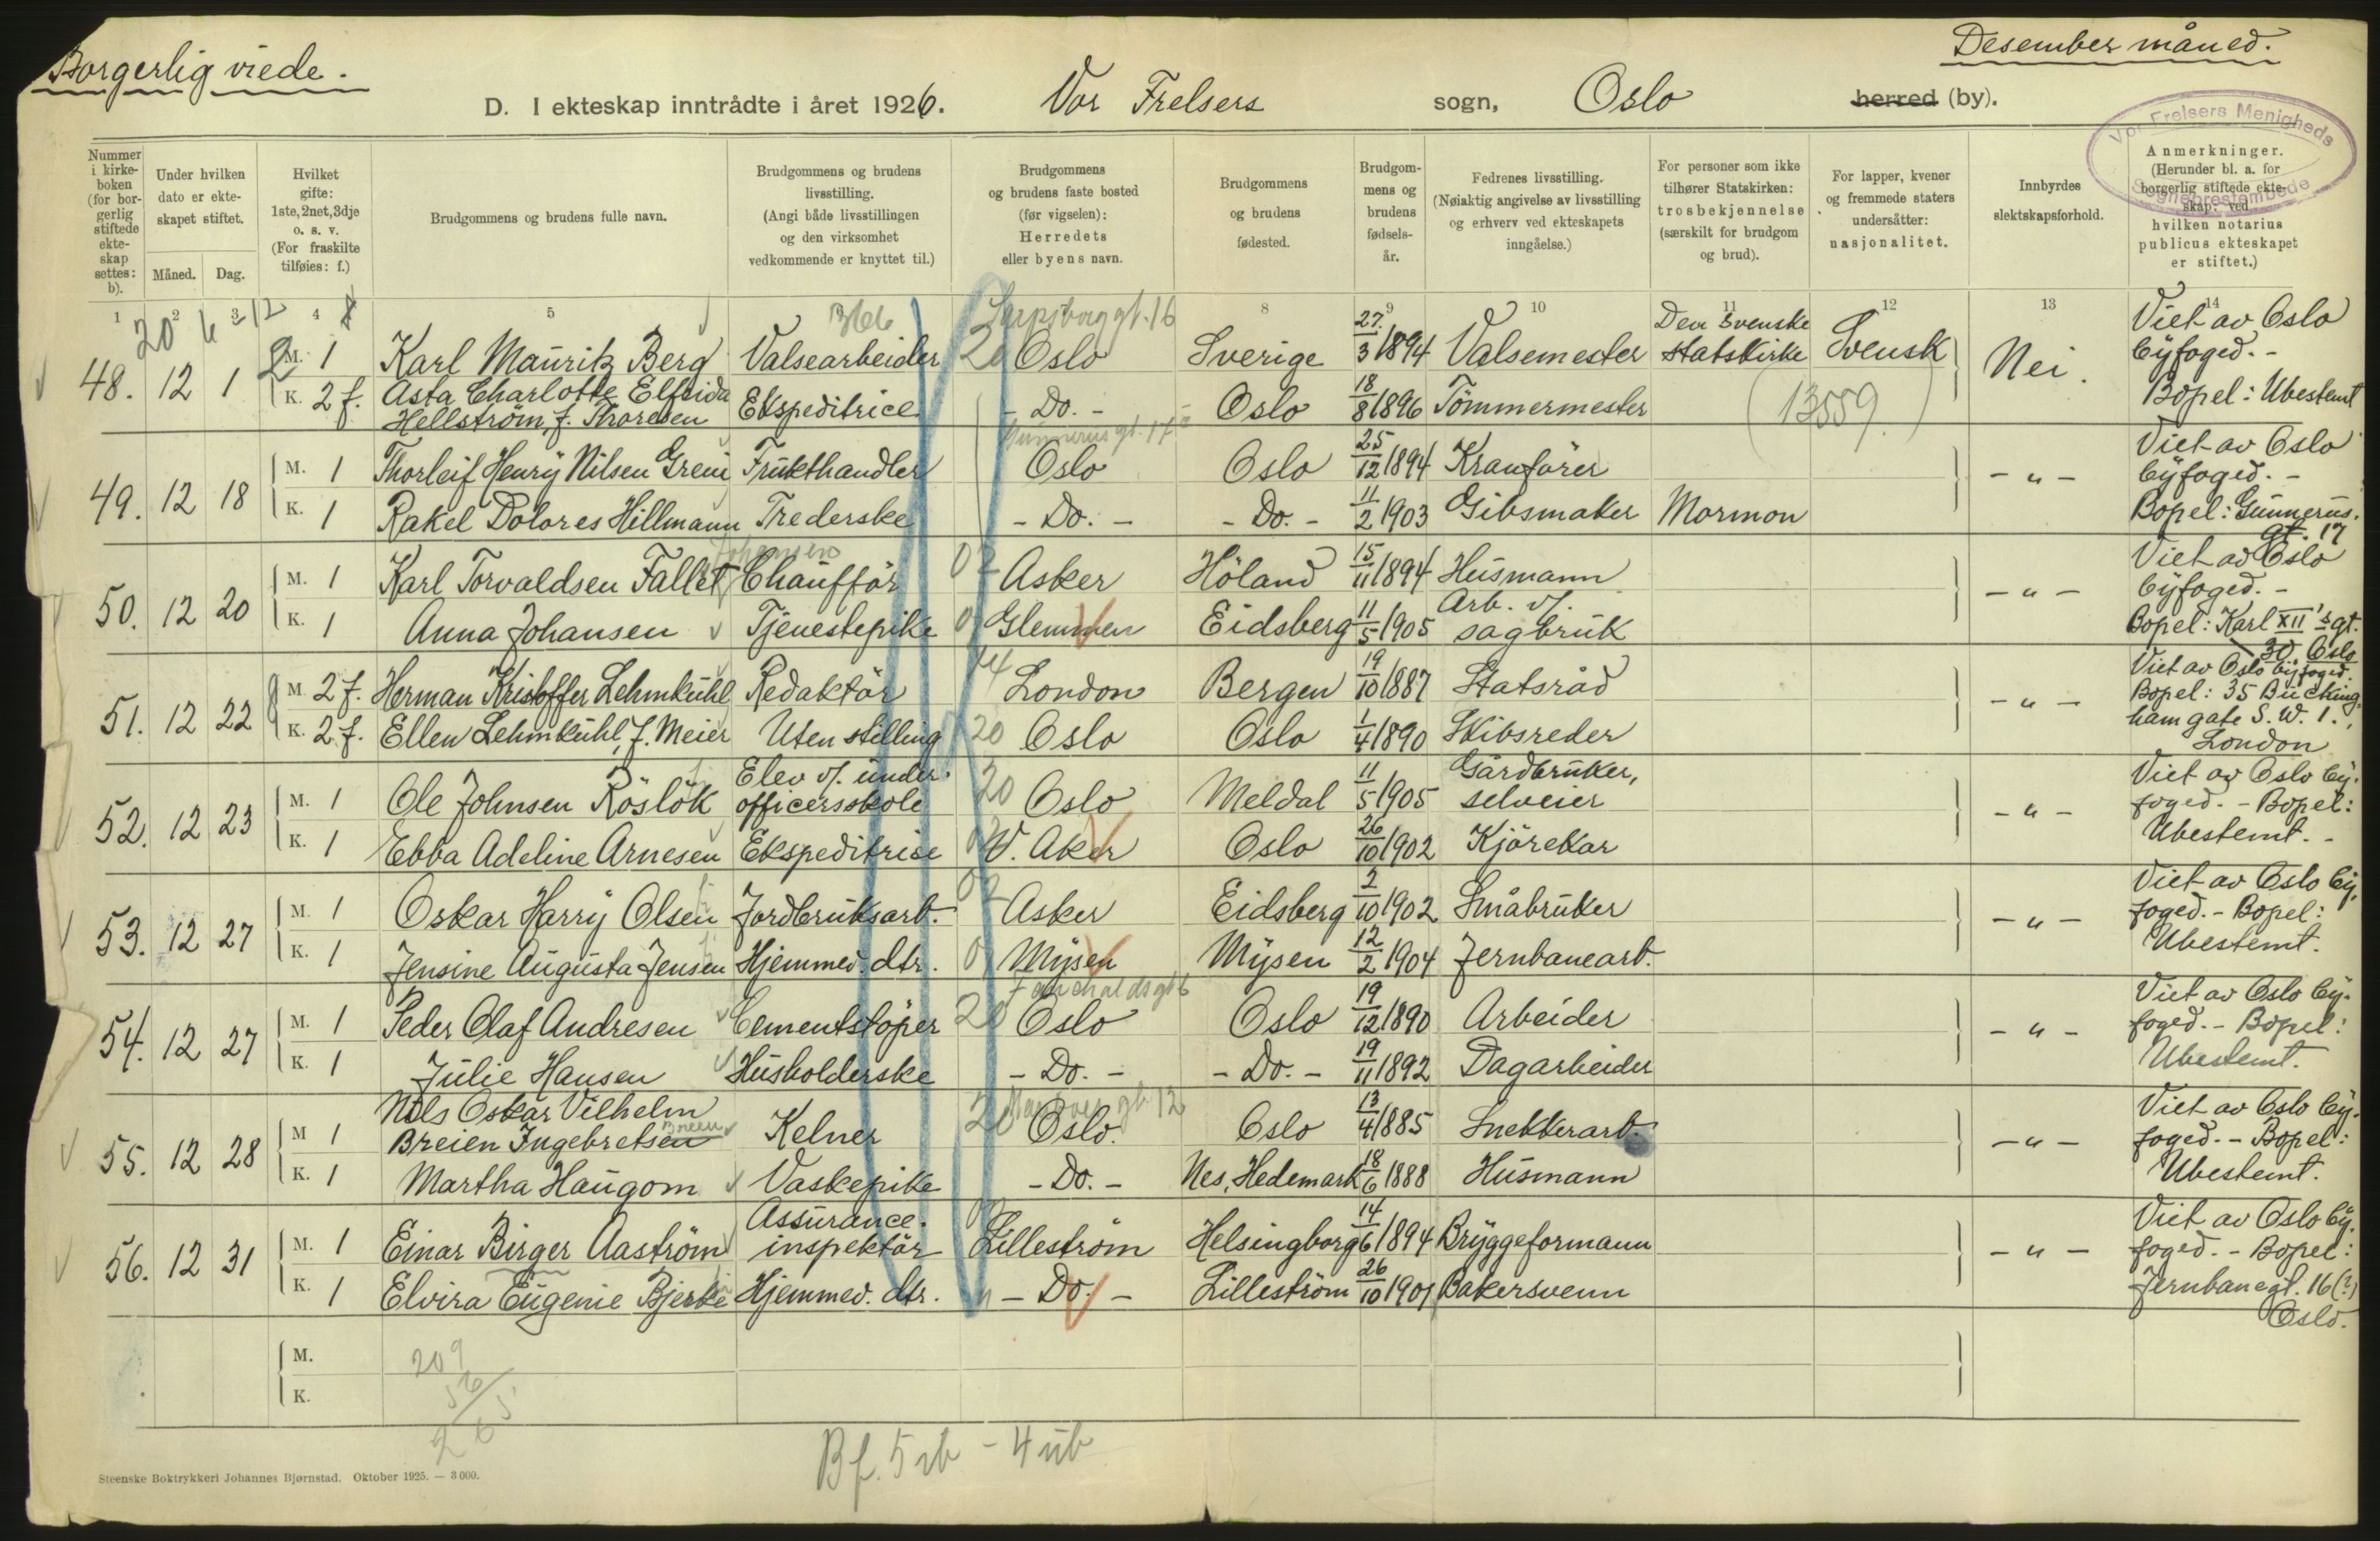 Borgerlig viede.
Desember måned.
D. I ekteskap inntrådte i året 1926. Vor Frelsers sogn, Oslo herred (by).
Vor Frelsers Menigheds
Sogneprestembede
Nummer i kirkeboken (for borgerlig stiftede ekteskap settes: b).
Under hvilken dato er ekteskapet stiftet.
Måned. Dag.
Hvilket gifte: 1ste, 2net, 3dje o. s. v. (For fraskilte tilføies: f.)
Brudgommens og brudens fulle navn.
Brudgommens og brudens livsstilling. (Angi både livsstillingen og den virksomhet vedkommende er knyttet til.)
Brudgommens og brudens faste bosted (før vigselen): Herredets eller byens navn.
Brudgommens og brudens fødested.
Brudgommens og brudens fødselsår.
Fedrenes livsstilling. (Nøiaktig angivelse av livsstilling og erhverv ved ekteskapets inngåelse.)
For personer som ikke tilhører Statskirken: trosbekjennelse (særskilt for brudgom og brud).
For lapper, kvener og fremmede staters undersåtter: nasjonalitet.
Innbyrdes slektskapsforhold.
Anmerkninger. (Herunder bl. a. for borgerlig stiftede ekteskap: ved hvilken notarius publicus ekteskapet er stiftet.)
1 2 3 4 5 8 9 10 11 12 13 14
48. 12 1 M. 1 Karl Mauritz Berg Valsearbeider 20 Oslo Sverige 27/3 1894 Valsemester Den svenske statskirke Svensk Nei. Viet av Oslo byfoged. - Bopel: Ubestemt
K. 2 f. Asta Charlotte Elfrida Hellström, f. Thoresen Ekspeditrice - Do. - Oslo 18/8 1896 Tömmermester (13559)
49. 12 18 M. 1 Thorleif Henry Nilsen Greni Frukthandler Oslo Oslo 25/12 1894 Kranfører - " - Viet av Oslo byfoged. - Bopel: Gunnerus. gt. 17
K. 1 Rakel Dolores Hillmann Trederske - Do. - - Do. - 11/2 1903 Gibsmaker Mormon
50. 12 20 M. 1 Karl Torvaldsen Fallet Johansen Chaufför 02 Asker Höland 15/11 1894 Husmann - " - Viet av Oslo byfoged. - Bopel: Karl XII's gt. 30, Oslo
K. 1 Anna Johansen Tjenestepike Glemmen Eidsberg 11/5 1905 Arb. v/. sagbruk
51. 12 22 M. 2 f. Herman Kristoffer Lehmkuhl Redaktör London Bergen 19/10 1887 Statsråd - " - Viet av Oslo byfoged. Bopel: 35 Buckingham gate S. W. 1., London
K. 2 f. Ellen Lehmkuhl, f. Meier Uten stilling 20 Oslo Oslo 1/4 1890 Skibsreder
52. 12 23 M. 1 Ole Johnsen Röslök Elev v/. underofficersskole 20 Oslo Meldal 11/5 1905 Gårdbruker, selveier - " - Viet av Oslo byfoged. - Bopel: Ubestemt. -
K. 1 Ebba Adeline Arnesen Ekspeditrise V. Aker Oslo 26/10 1902 Kjörekar
53. 12 27 M. 1 Oskar Harry Olsen Jordbruksarb. 02 Asker Eidsberg 2/10 1902 Småbruker - " - Viet av Oslo byfoged. - Bopel: Ubestemt.
K. 1 Jensine Augusta Jensen Hjemmev. dtr. Mysen Mysen 12/2 1904 Jernbanearb.
54. 12 27 M. 1 Peder Olaf Andresen Cementstöper 20 Oslo Oslo 19/12 1890 Arbeider - " - Viet av Oslo byfoged. - Bopel: Ubestemt.
K. 1 Julie Hansen Husholderske - Do. - - Do. - 19/11 1892 Dagarbeider
55. 12 28 M 1 Nils Oskar Vilhelm Breien Ingebretsen Kelner 20 Oslo. Oslo 13/4 1885 Snekkerarb. - " - Viet av Oslo byfoged. - Bopel: Ubestemt.
K. 1 Martha Haugom Vaskepike - Do. - Nes, Hedemark 18/6 1888 Husmann
56. 12 31 M. 1 Einar Birger Aaström Assurance-inspektör Lilleström Helsingborg 14/6 1894 Bryggeformann - " - Viet av Oslo byfoged. - Bopel: Jernbanegt. 16 (?) Oslo.
K. 1 Elvira Eugenie Bjerke Hjemmev. dtr. - Do. - Lilleström 26/10 1901 Bakersvenn
M.
K.
209
56
265
Bf. 5 rb - 4 ub
Steenske Boktrykkeri Johannes Bjørnstad. Oktober 1925. — 3 000.